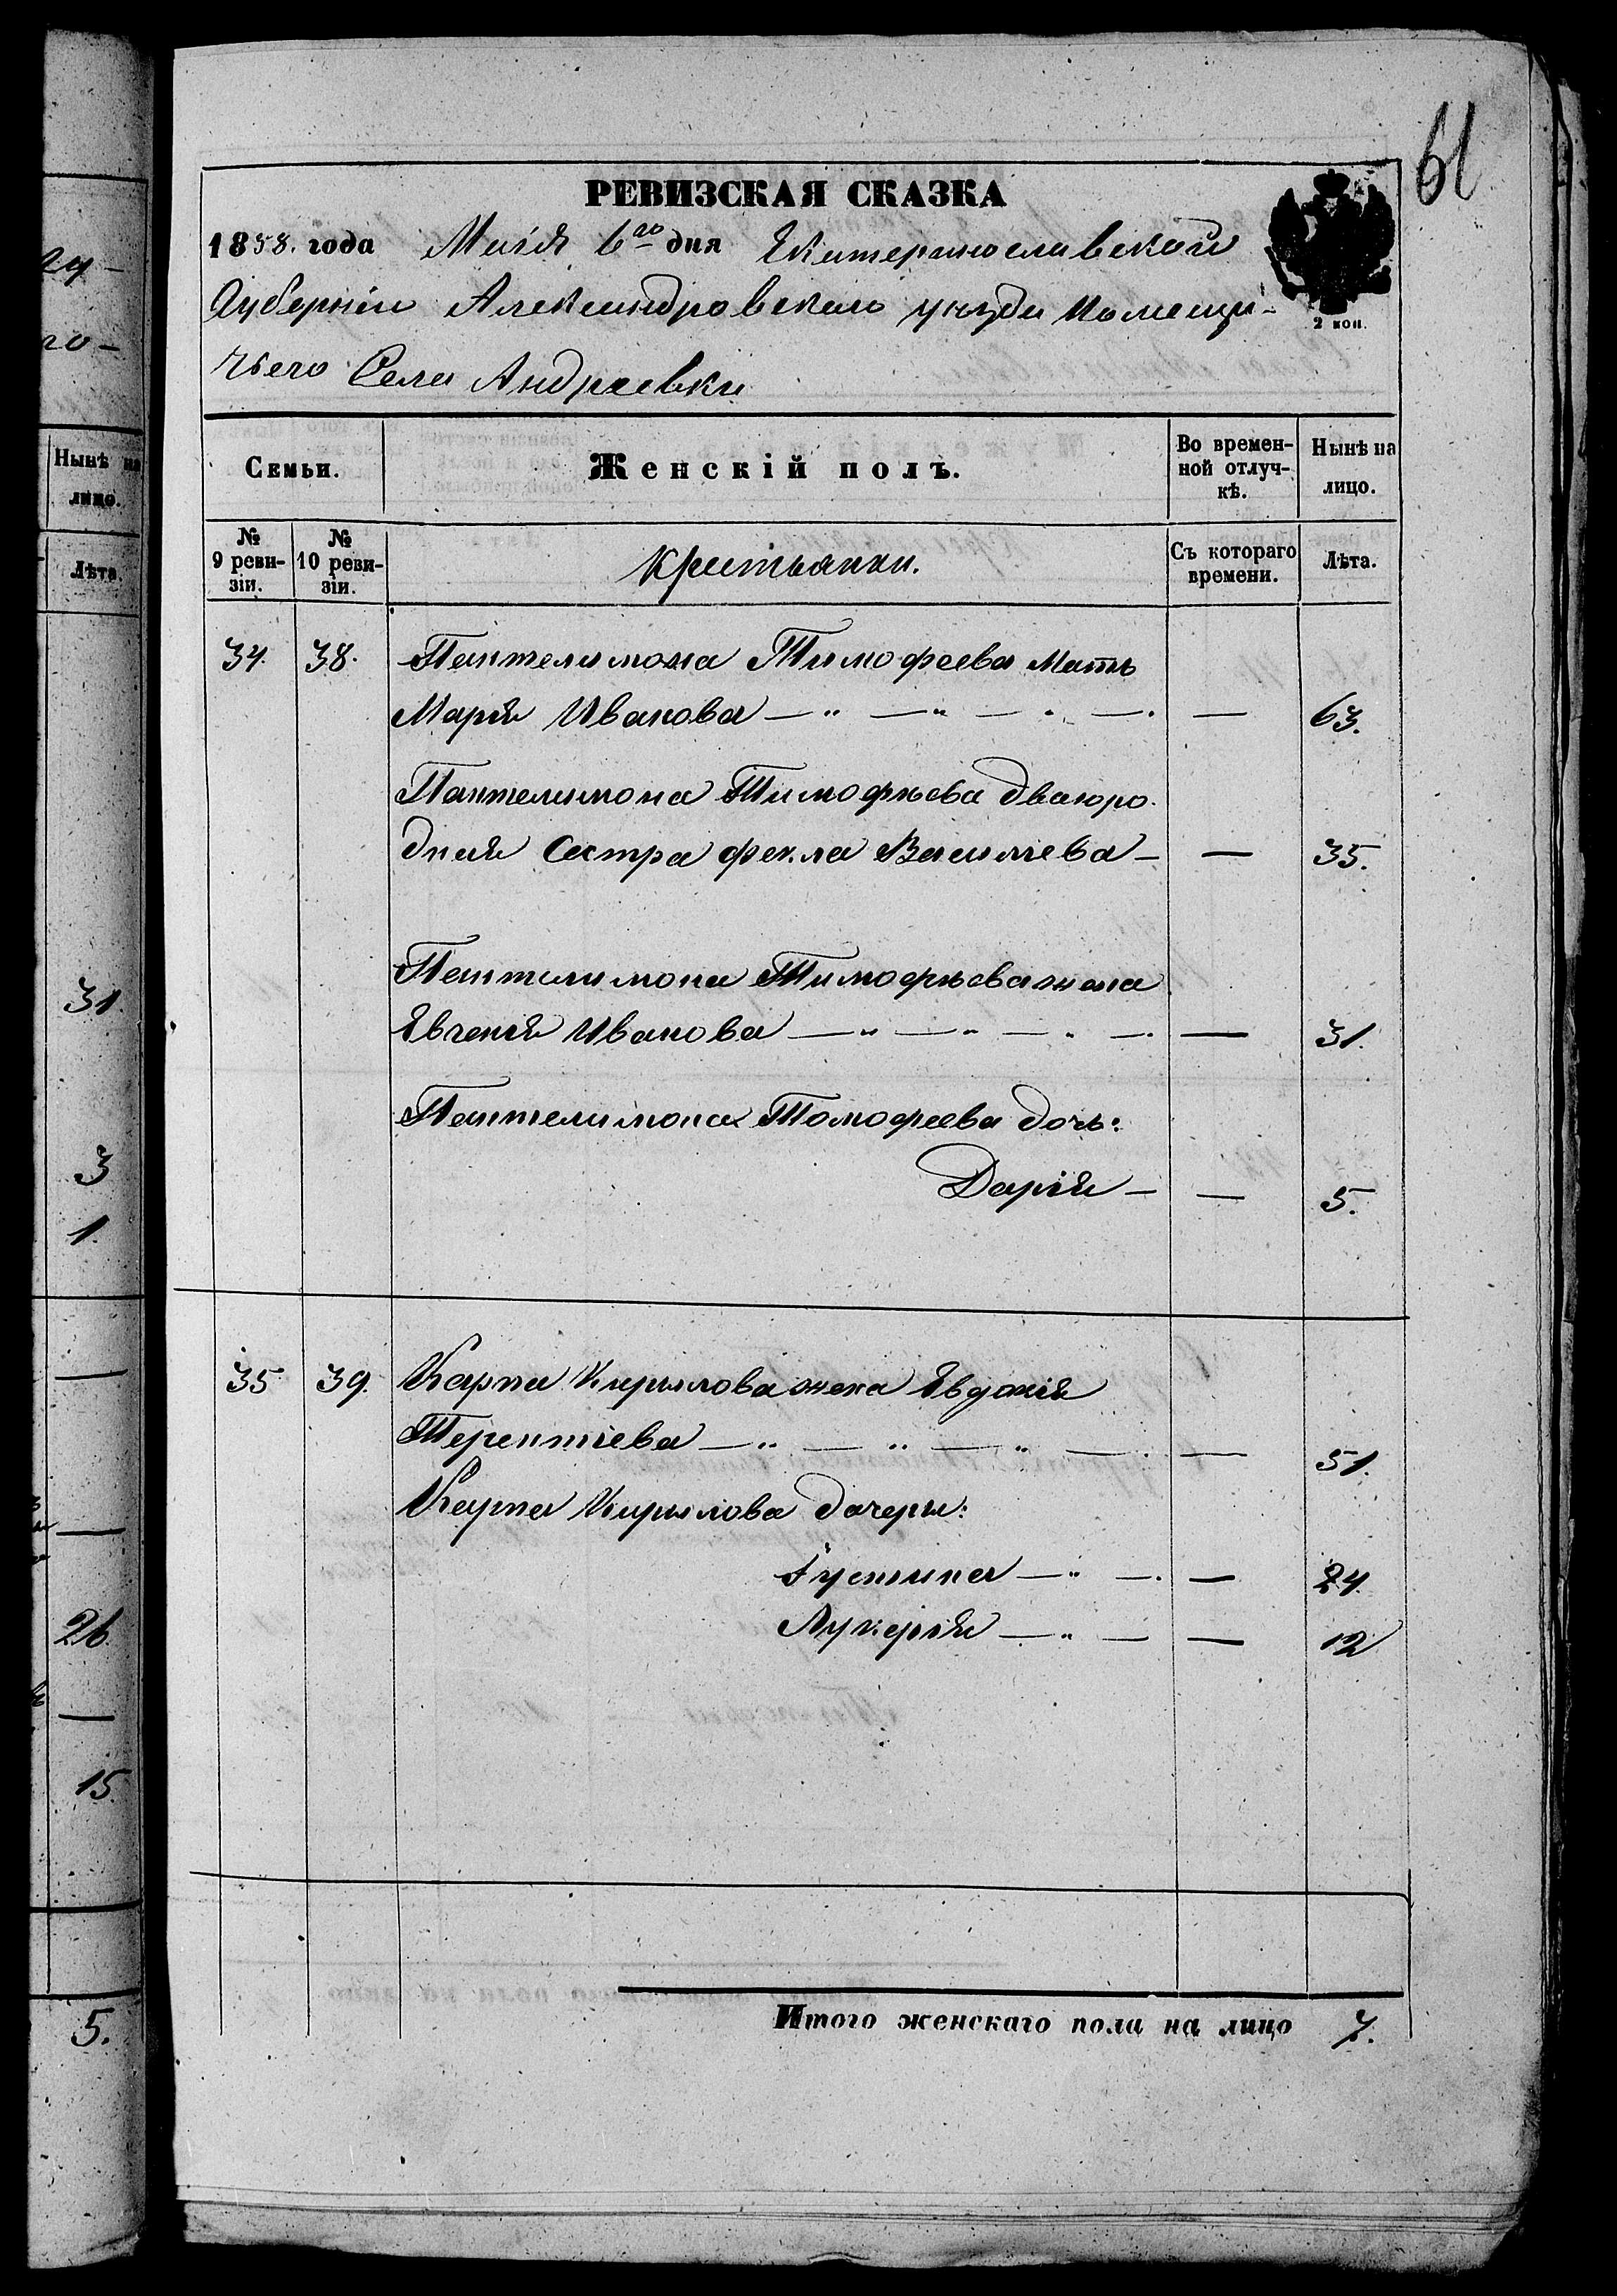 61
РЕВИЗСКАЯ СКАЗКА
1858. года Маія 6го дня Екатеринославской
Губерніи Александровскаго уѣзда помещи-
чьего Села Андреевки
2 коп.
Семьи.
Женскій полъ.
Во времен-
ной отлуч-
кѣ.
Нынѣ на
лицо.
№
9 реви-
зіи.
№
10 реви-
зіи.
Крестьянки.
Съ котораго
времени.
Лѣта.
34. 38. Пантелимона Тимофеева Мать
Марія Иванова — — 63.
Пантелимона Тимофѣева дваюро-
дная Сестра Фекла Васильева — — 35.
Пантелимона Тимофѣева жена
Евгенія Иванова — — 31.
Пантелимона Томофеева дочь:
Дарія — — 5.
35 39. Карпа Кирылова жена Евдокія
Терентіева — — 51.
Карпа Кирылова дочеры:
Іустина — — 24.
Лукерія — — 12
Итого женскаго пола на лицо 7.
Нынѣ на
лицо.
Лѣта.
31.
3
1.
26.
15.
5.